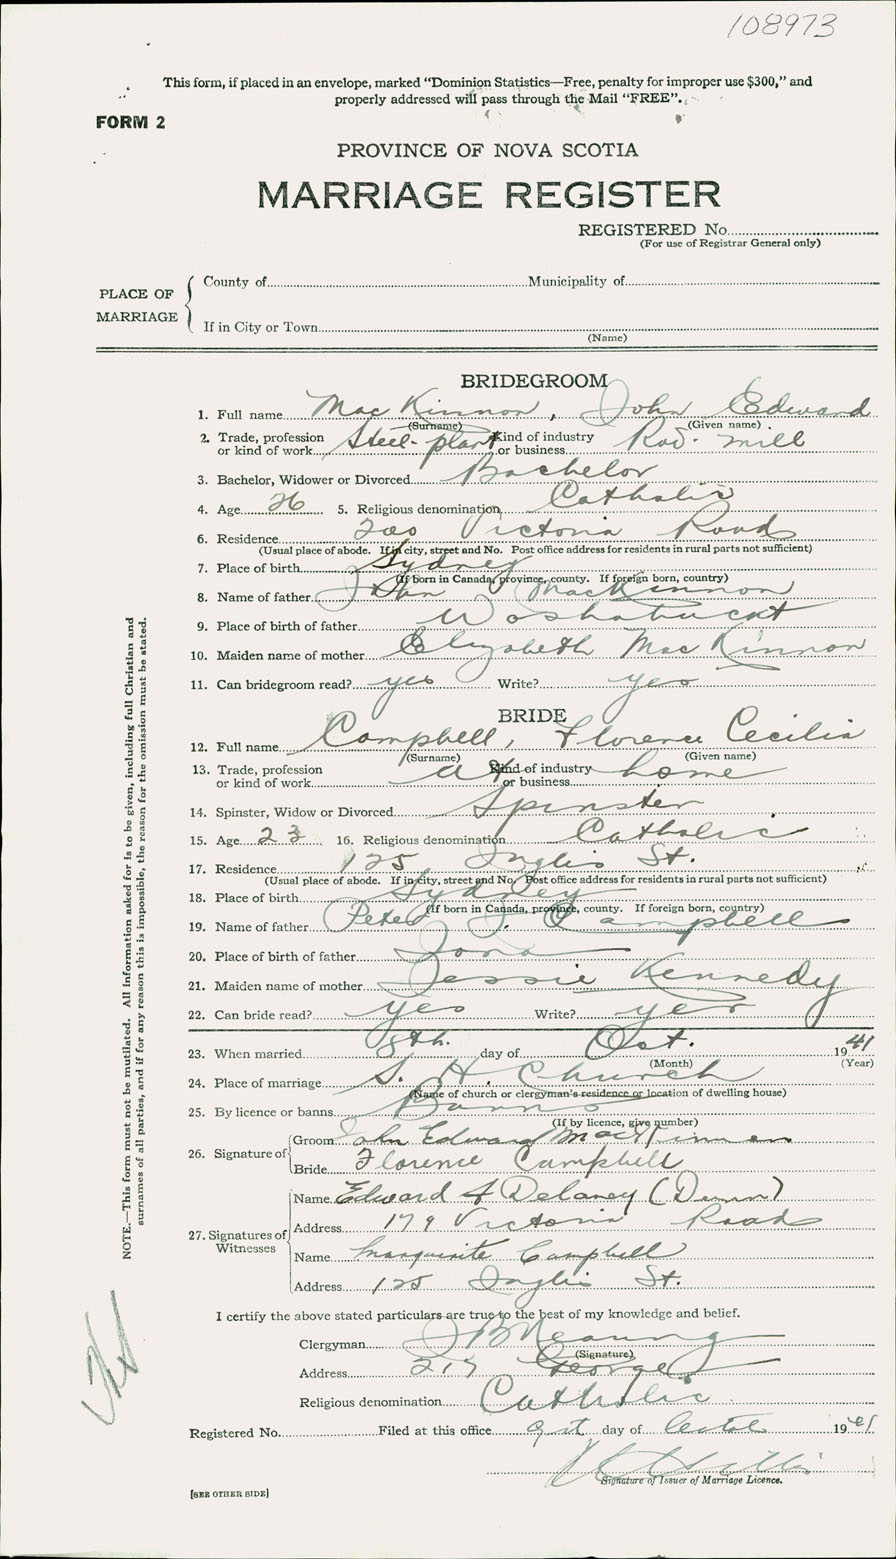 108973
This form, if placed in an envelope, marked “Dominion Statistics—Free, penalty for improper use $300,” and
properly addressed will pass through the Mail “FREE”.
FORM 2
PROVINCE OF NOVA SCOTIA
MARRIAGE REGISTER
REGISTERED No.
(For use of Registrar General only)
PLACE OF MARRIAGE
County of Municipality of
If in City or Town
(Name)
BRIDEGROOM
1. Full name Mac Kinnon, John Edward
(Surname) (Given name)
2. Trade, profession or kind of work Steel plant Kind of industry or business Rod. mill
3. Bachelor, Widower or Divorced Bachelor
4. Age 26 5. Religious denomination Catholic
6. Residence 200 Victoria Road
(Usual place of abode. If in city, street and No. Post office address for residents in rural parts not sufficient)
7. Place of birth Sydney
(If born in Canada, province, county. If foreign born, country)
8. Name of father John MacKinnon
9. Place of birth of father Washabuckt
10. Maiden name of mother Elizabeth Mac Kinnon
11. Can bridegroom read? yes Write? yes
BRIDE
12. Full name Campbell, Florence Cecilia
(Surname) (Given name)
13. Trade, profession or kind of work at Kind of industry or business home
14. Spinster, Widow or Divorced Spinster
15. Age 23 16. Religious denomination Catholic
17. Residence 125 Inglis St.
(Usual place of abode. If in city, street and No. Post office address for residents in rural parts not sufficient)
18. Place of birth Sydney
(If born in Canada, province, county. If foreign born, country)
19. Name of father Peter J. Campbell
20. Place of birth of father Iona
21. Maiden name of mother Jessie Kennedy
22. Can bride read? yes Write? yes
23. When married 8th. day of Oct. 1941
(Month) (Year)
24. Place of marriage S. H. Church
(Name of church or clergyman's residence or location of dwelling house)
25. By licence or banns Banns
(If by licence, give number)
26. Signature of Groom John Edward MacKinnon
Bride Florence Campbell
27. Signatures of Witnesses
Name Edward J Delaney (Dunn)
Address 179 Victoria Road
Name Marguirite Campbell
Address 125 Inglis St.
I certify the above stated particulars are true to the best of my knowledge and belief.
Clergyman
(Signature)
Address 217 George
Religious denomination Catholic
Registered No. Filed at this office day of 1941
Signature of Issuer of Marriage Licence.
[SEE OTHER SIDE]
NOTE.—This form must not be mutilated. All information asked for is to be given, including full Christian and
surnames of all parties, and if for any reason this is impossible, the reason for the omission must be stated.